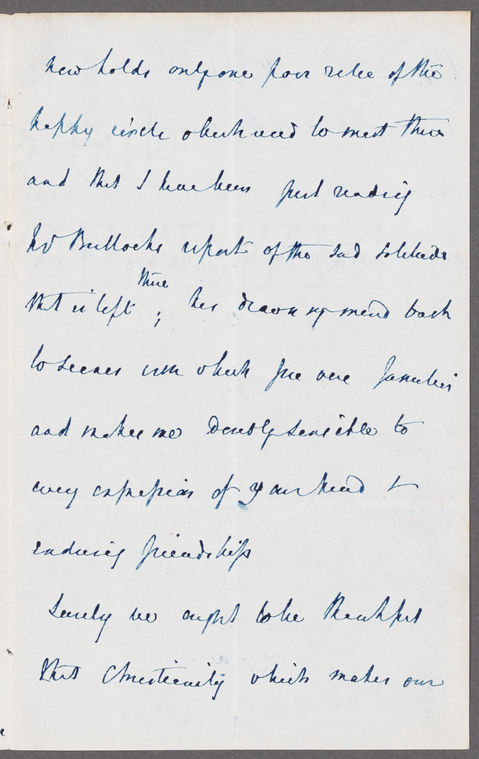 now holds only one poor relic of the
happy circle which used to meet there
and that I have been just reading
Mr Bullocks report of the sad solitude
that is left there; has drawn my mind back
to scenes with which you were familiar
and makes me doubly sensible to
every expression of your kind &
enduring friendship
Surely we ought to be thankful
that Christianity which makes our